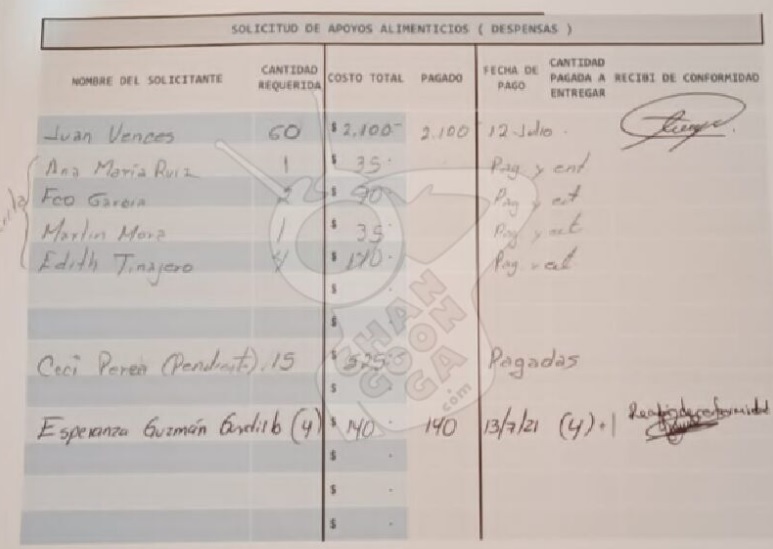 SOLICITUD DE APOYOS ALIMENTICIOS ( DESPENSAS )
NOMBRE DEL SOLICITANTE CANTIDAD REQUERIDA COSTO TOTAL PAGADO FECHA DE PAGO CANTIDAD PAGADA A ENTREGAR RECIBI DE CONFORMIDAD
Juan Vences 60 $ 2,100- 2.100 12 Julio
Ana María Ruiz 1 $ 35- Pag y ent
Fco García 2 $ 90- Pag y ent
Marlin Mora 1 $ 35- Pag y ent
Edith Tinajero 4 $ 140- Pag y ent
$ -
$ -
Ceci Perea (Pendient). 15 $ 525- Pagadas
$ -
Esperanza Guzmán (4) $ 140- 140 13/7/21 (4)+1 Recibi de conformidad
$ -
$ -
$ -
CHANGOONGA
.com